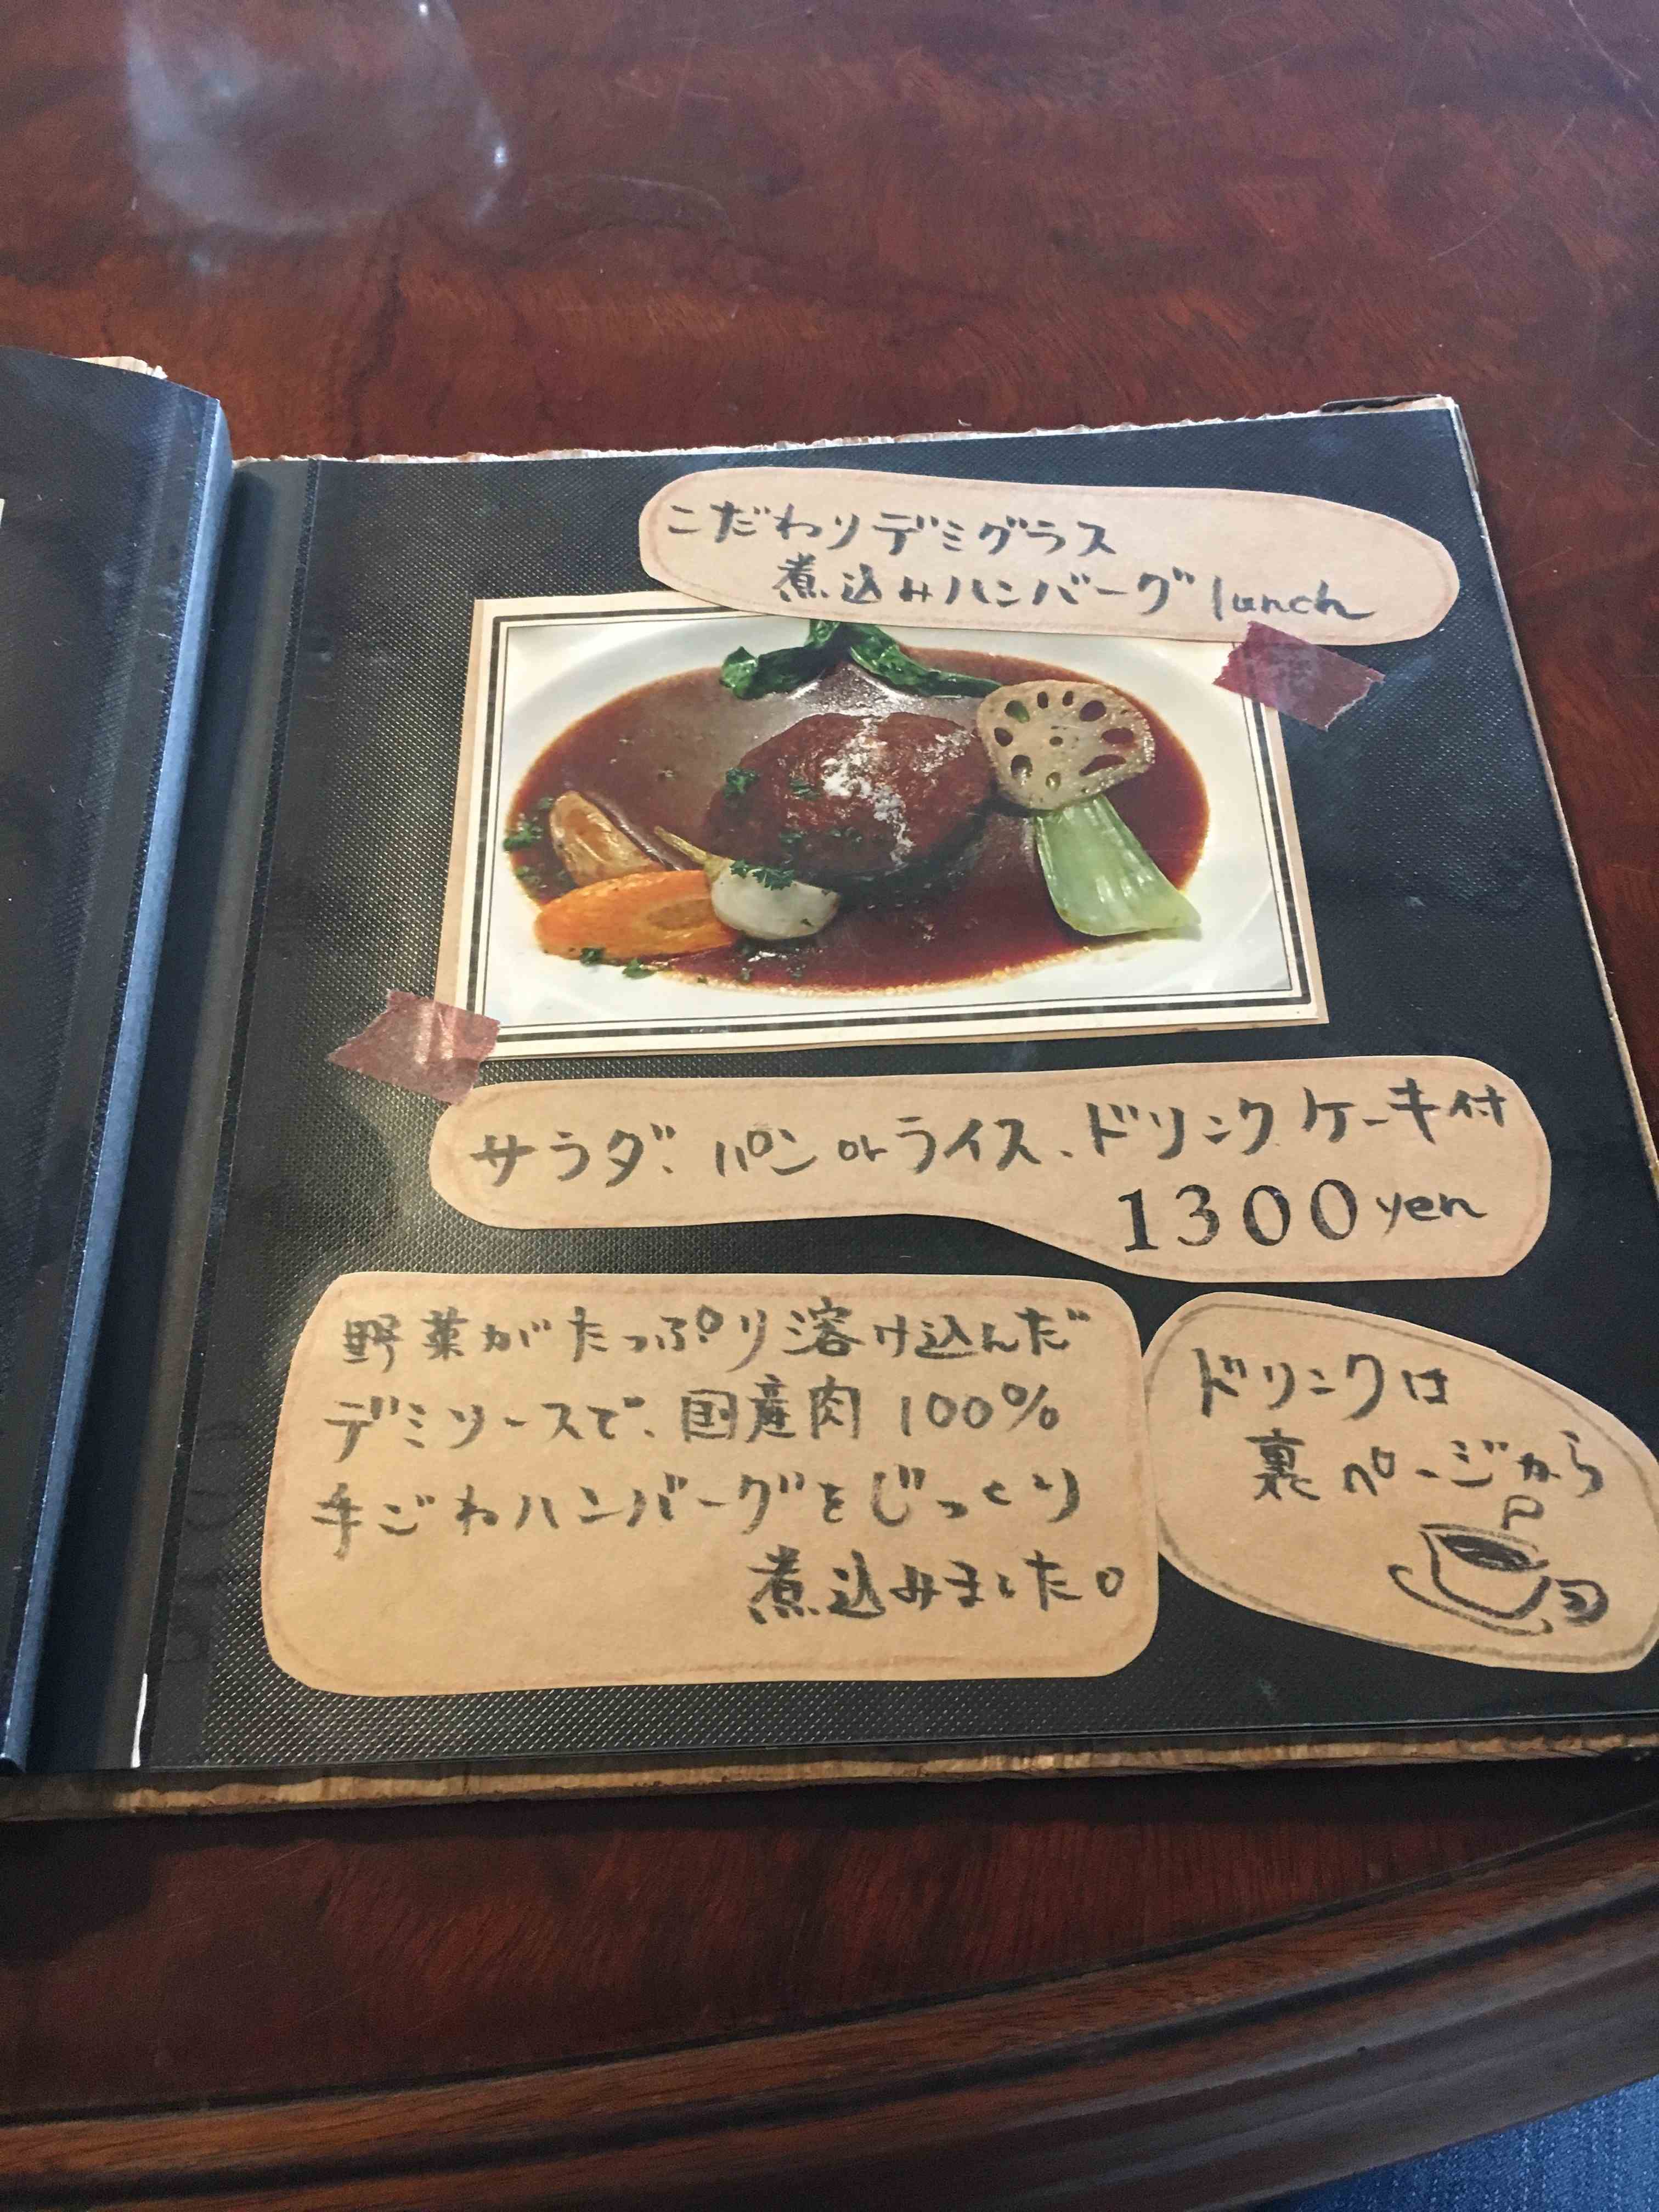 こだわりデミグラス
煮込みハンバーグlunch
サラダ、パンorライス、ドリンク ケーキ付
1300yen
野菜がたっぷり溶け込んだ
デミソースで、国産肉 100%
手ごねハンバーグをじっくり
煮込みました。
ドリンクは
裏ページから